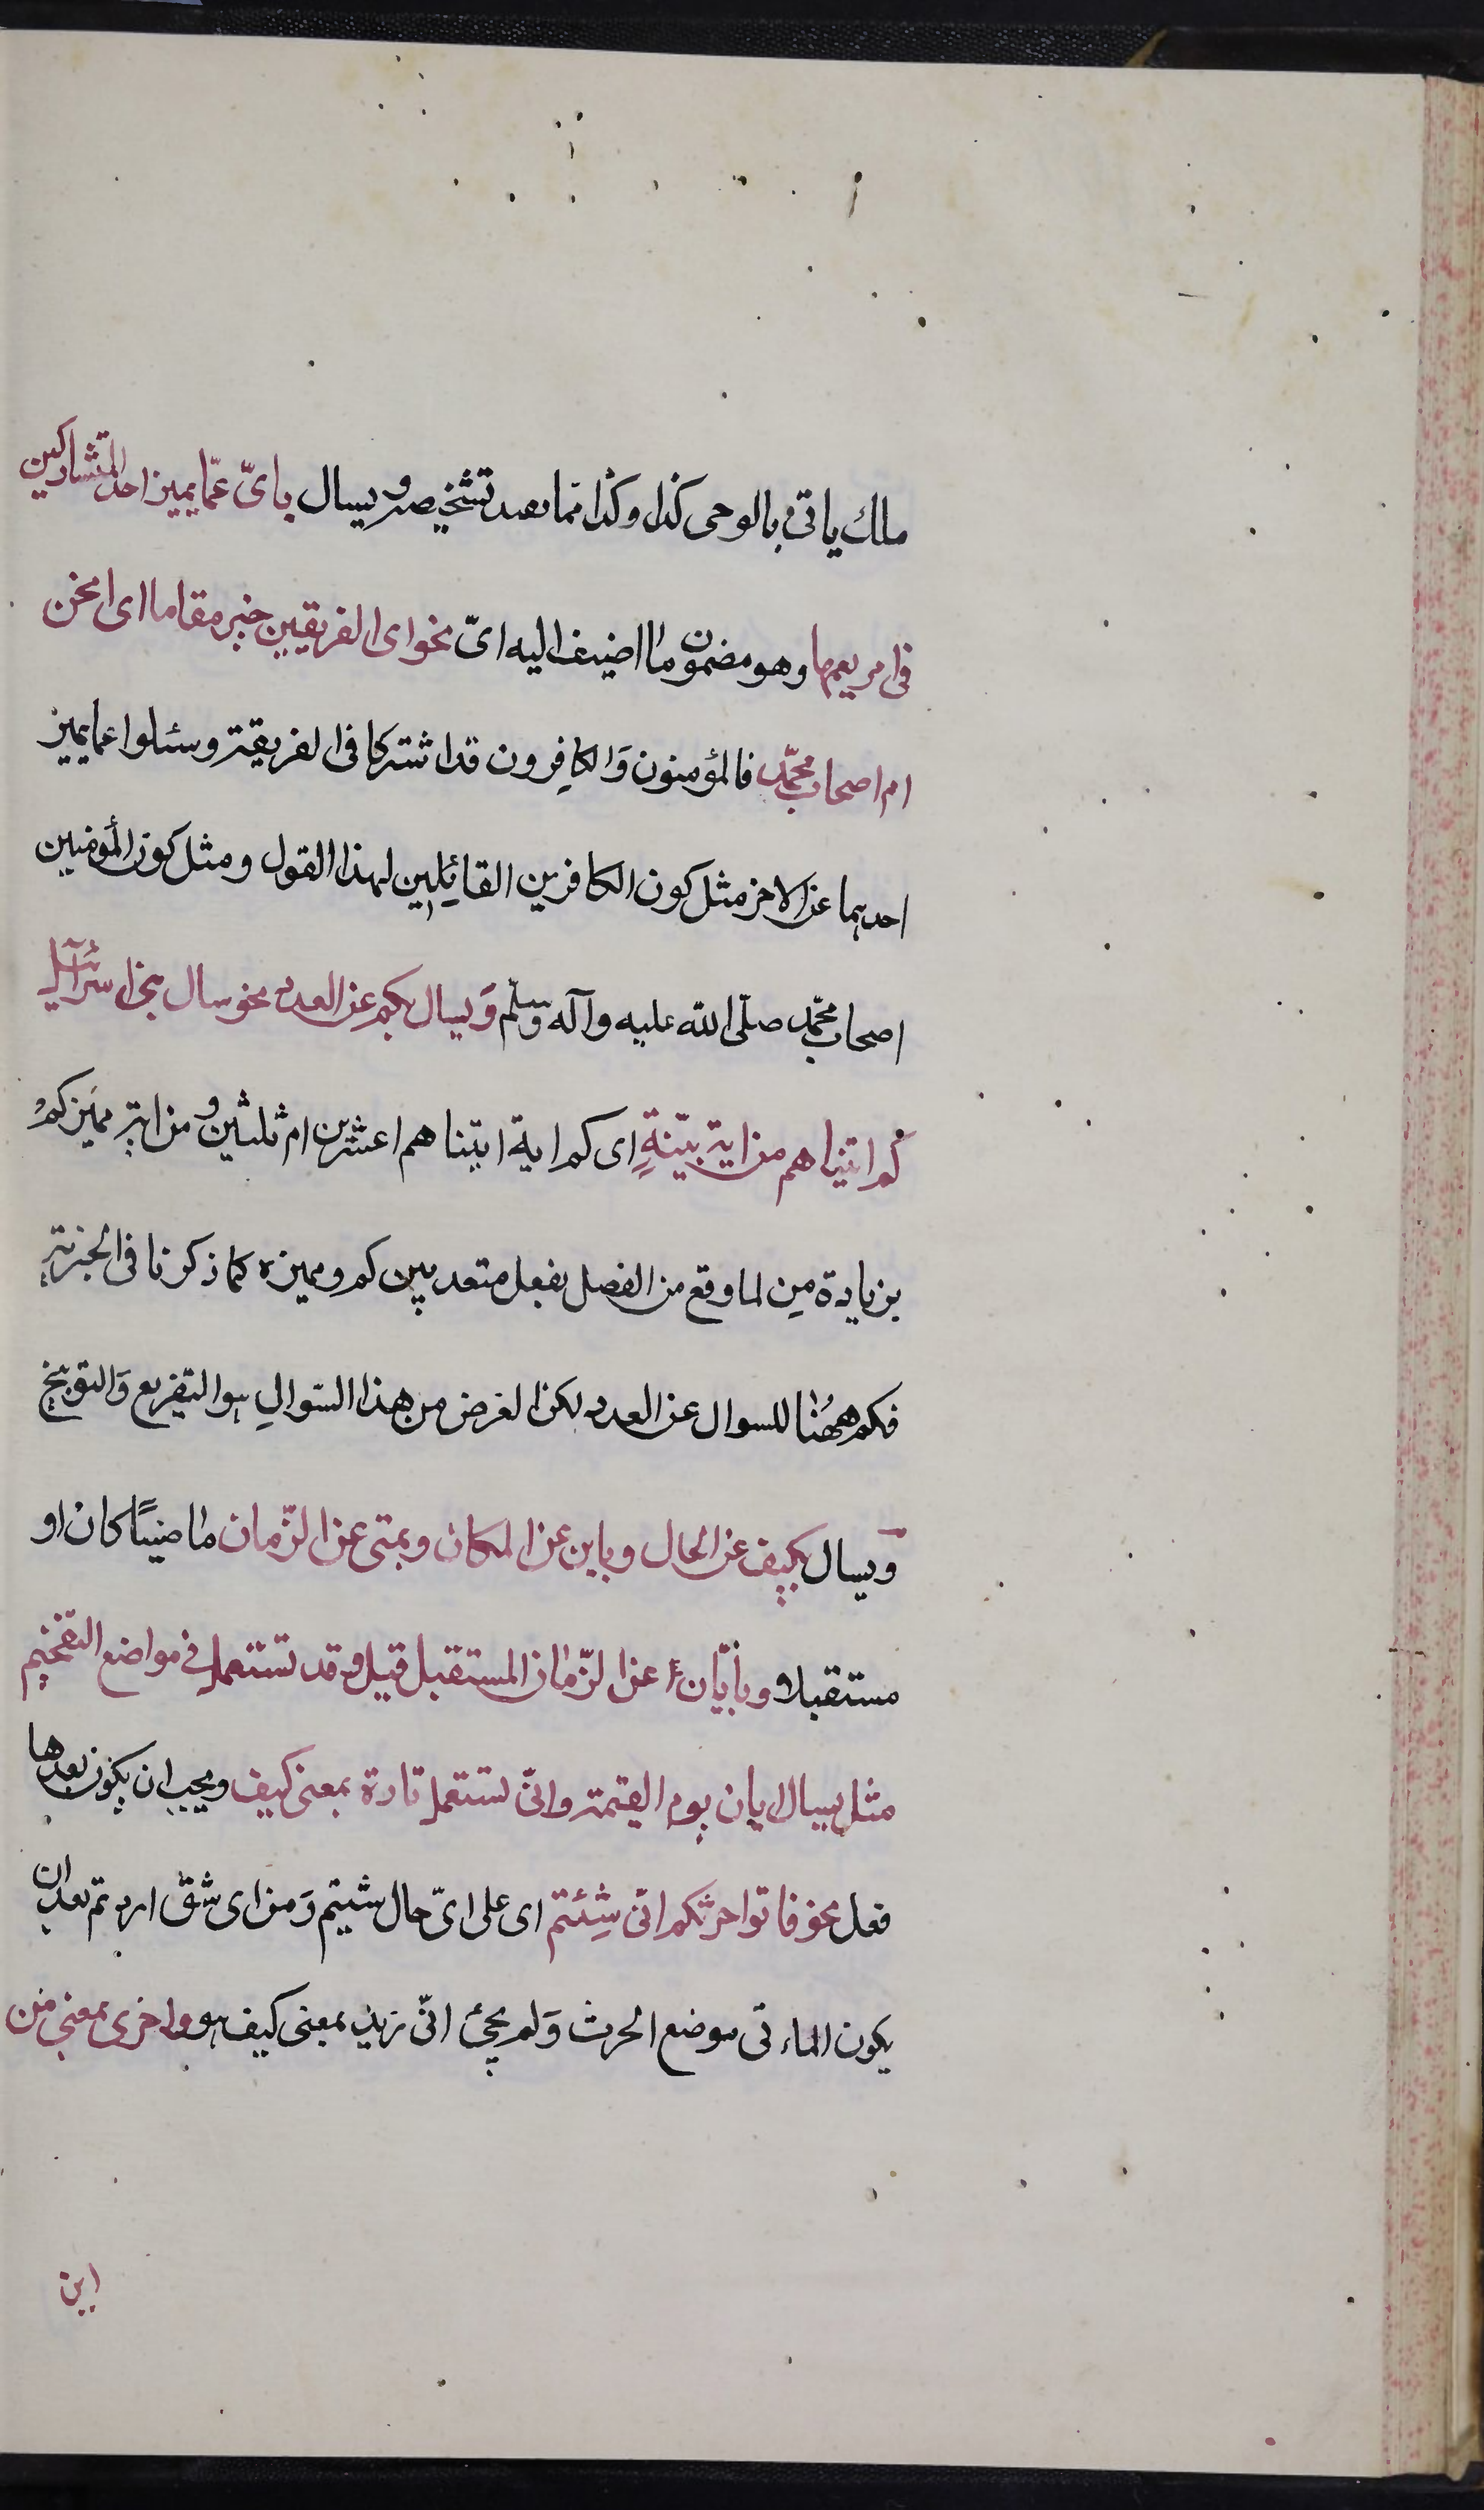 ملك ياتى بالوحى كذا وكذا مما يفيد تشخيصه ويسال باىّ عمّا يميز احد المتشاركين
فى امر يعمهما وهو مضمون ما اضيف اليه اىّ نحو اى الفريقين خير مقاما اى انحن
ام اصحاب محمّد فالمؤمنون وَالكافِرون قد اشتركا فى الفريقية وسئلوا عما يميز
احدهما عن الاخر مثل كون الكافرين القائِلين لهذا القول ومثل كون المؤمنين
اصحاب محمّد صلّى الله عليه وآله وسلّم وَيسال بكم عن العدد نحو سال بنى اسرآئيل
كم اتيناهم من اية بيّنةٍ اى كم اية اتيناهم اعشرين ام ثلثين ومن اية مميّز كمْ
بزيادة مِن لما وقع من الفصل بفعل متعد بين كم ومميزه كما ذكرنا فى الخبرية
فكم ههُنا للسوال عن العدد لكن الغرض من هذا السّوالِ هو التقريع وَالتوبيخ
ويسال بكيف عن الحال وباين عن المكان وبمتى عن الزّمان ماضيًا كان او
مستقبلا وبأيّان عن الزّمان المستقبل قيل وقد تستعمل فى مواضع التفخيم
مثل يسال ايان يوم القيمة وانّى تستعمل تارة بمعنى كيف ويجب ان يكون بعدها
فعل نحو فاتوا حرثكم انّى شِئتم اى على اىّ حال شيتم وَمن اى شقّ اردتم بعد ان
يكون الماءتى موضع الحرث وَلم يجئ انّى زيد بمعنى كيف هو واخرى بمعنى من
اين